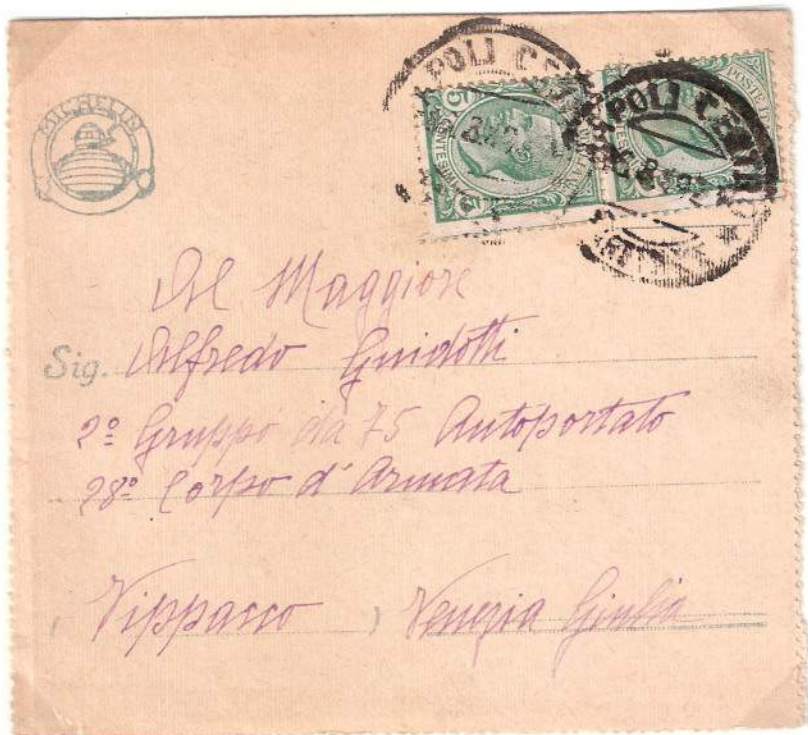 MICHELIN
POLI CE
POLI CENTRO
POSTE
Al Maggiore
Sig. Alfredo Guidotti
2º Gruppo da 75 Autoportato
28º Corpo d'Armata
Vippacco ) Venezia Giulia